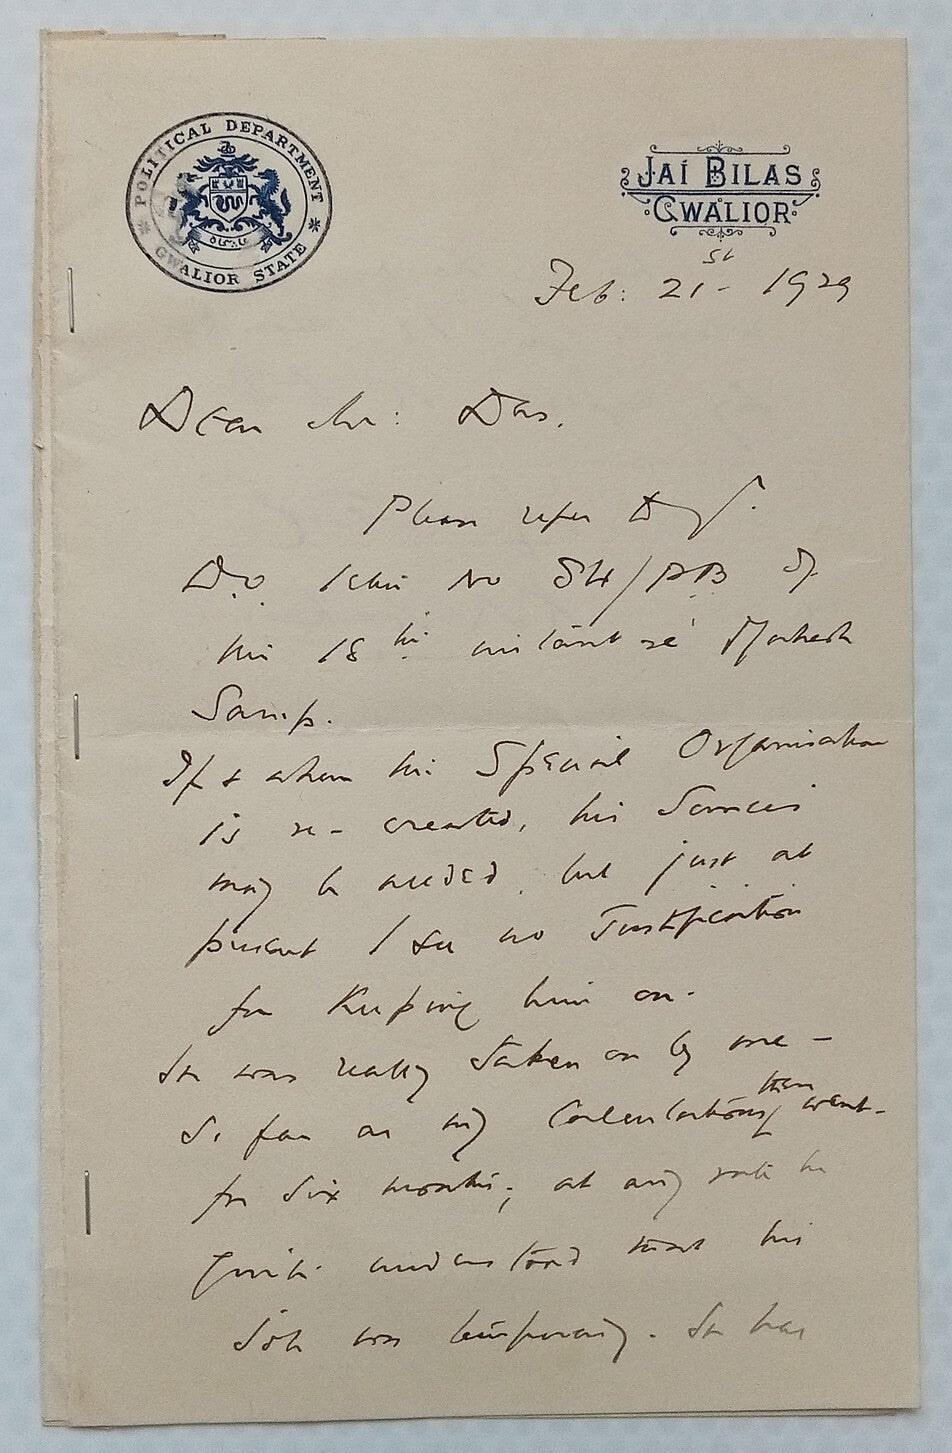 POLITICAL DEPARTMENT
GWALIOR STATE
JAI BILAS
GWALIOR
Feb: 21st 1929
Dear Mr: Das.
Please refer to
D.O. letter No 84/P.B of
the 18th instant re Mahesh
Sarup.
If & when the Special Organisation
is re-created, his services
may be needed, but just at
present I see no justification
for keeping him on.
He was really taken on by me -
So far as my calculations then went -
for six months; at any rate he
quite understood that his
job was temporary. He has